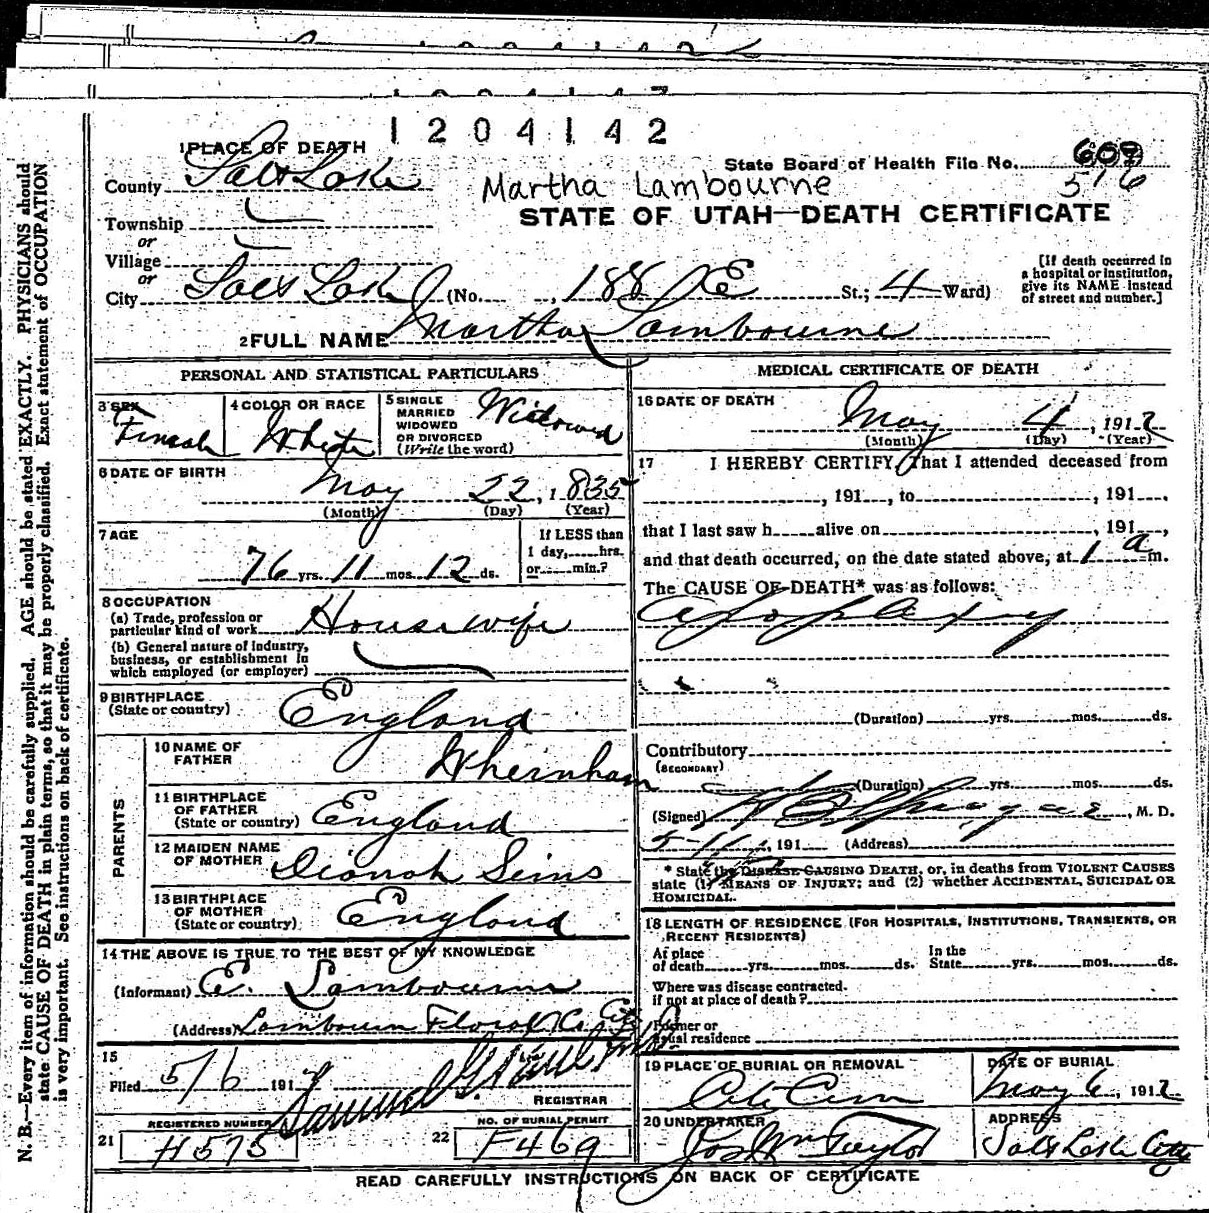 1 2 0 4 1 4 2
1 PLACE OF DEATH
State Board of Health File No. 609
516
County Salt Lake
Martha Lambourne
STATE OF UTAH—DEATH CERTIFICATE
Township
or
Village
or
City Salt Lake (No. , 188 E St.; 4 Ward)
[If death occurred in
a hospital or institution,
give its NAME instead
of street and number.]
2 FULL NAME Martha Lambourne
PERSONAL AND STATISTICAL PARTICULARS
3 SEX
Female
4 COLOR OR RACE
White
5 SINGLE
MARRIED
WIDOWED
OR DIVORCED
(Write the word)
Widowed
6 DATE OF BIRTH
May 22, 1835
(Month) (Day) (Year)
7 AGE
76 yrs. 11 mos. 12 ds.
If LESS than
1 day, hrs.
or min.?
8 OCCUPATION
(a) Trade, profession or
particular kind of work Housewife
(b) General nature of industry,
business, or establishment in
which employed (or employer)
9 BIRTHPLACE
(State or country) England
PARENTS
10 NAME OF
FATHER Whernham
11 BIRTHPLACE
OF FATHER
(State or country) England
12 MAIDEN NAME
OF MOTHER Dianah Seims
13 BIRTHPLACE
OF MOTHER
(State or country) England
14 THE ABOVE IS TRUE TO THE BEST OF MY KNOWLEDGE
(Informant) E. Lambourne
(Address) Lambourn Floral Co. City
15
Filed 5/6 191
Samuel G.
REGISTRAR
REGISTERED NUMBER
21 H575
NO. OF BURIAL PERMIT
22 F469
MEDICAL CERTIFICATE OF DEATH
16 DATE OF DEATH
May 4, 1912
(Month) (Day) (Year)
17 I HEREBY CERTIFY, That I attended deceased from
, 191 , to , 191 ,
that I last saw h alive on , 191 ,
and that death occurred, on the date stated above, at 1 a m.
The CAUSE OF DEATH* was as follows:
Apoplexy
(Duration) yrs. mos. ds.
Contributory
(SECONDARY)
(Duration) yrs. mos. ds.
(Signed) Sprague, M. D.
, 191 (Address)
* State the DISEASE CAUSING DEATH, or, in deaths from VIOLENT CAUSES
state (1) MEANS OF INJURY; and (2) whether ACCIDENTAL, SUICIDAL OR
HOMICIDAL.
18 LENGTH OF RESIDENCE (FOR HOSPITALS, INSTITUTIONS, TRANSIENTS, OR
RECENT RESIDENTS)
At place
of death yrs. mos. ds.
In the
State yrs. mos. ds.
Where was disease contracted.
if not at place of death?
Former or
usual residence
19 PLACE OF BURIAL OR REMOVAL
City Cem
DATE OF BURIAL
May 6, 1912
20 UNDERTAKER
Jos Wm Taylor
ADDRESS
Salt Lake City
READ CAREFULLY INSTRUCTIONS ON BACK OF CERTIFICATE
N. B.—Every item of information should be carefully supplied. AGE should be stated EXACTLY. PHYSICIANS should
state CAUSE OF DEATH in plain terms, so that it may be properly classified. Exact statement of OCCUPATION
is very important. See instructions on back of certificate.